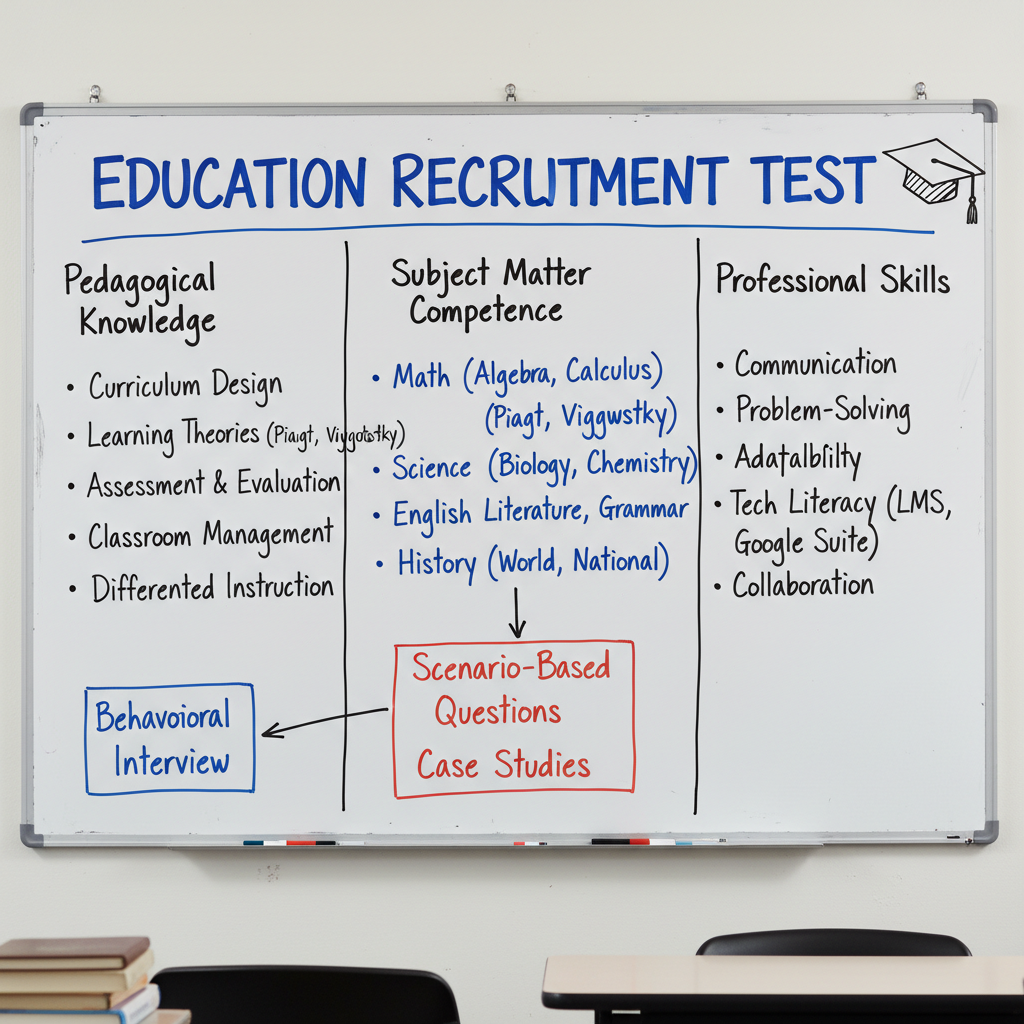 EDUCATION RECRUTMENT TEST
Pedagogical
Knowledge
• Curriculum Design
• Learning Theories (Piagt, Viygotstky)
• Assessment & Evaluation
• Classroom Management
• Differented Instruction
Subject Matter
Competence
• Math (Algebra, Calculus)
(Piagt, Viggwstky)
• Science (Biology, Chemistry)
• English Literature, Grammar
• History (World, National)
Scenario-Based
Questions
Case Studies
Behavoioral
Interview
Professional Skills
• Communication
• Problem-Solving
• Adaṭalbfilty
• Tech Literacy (LMS,
Google Suite)
• Collaboration